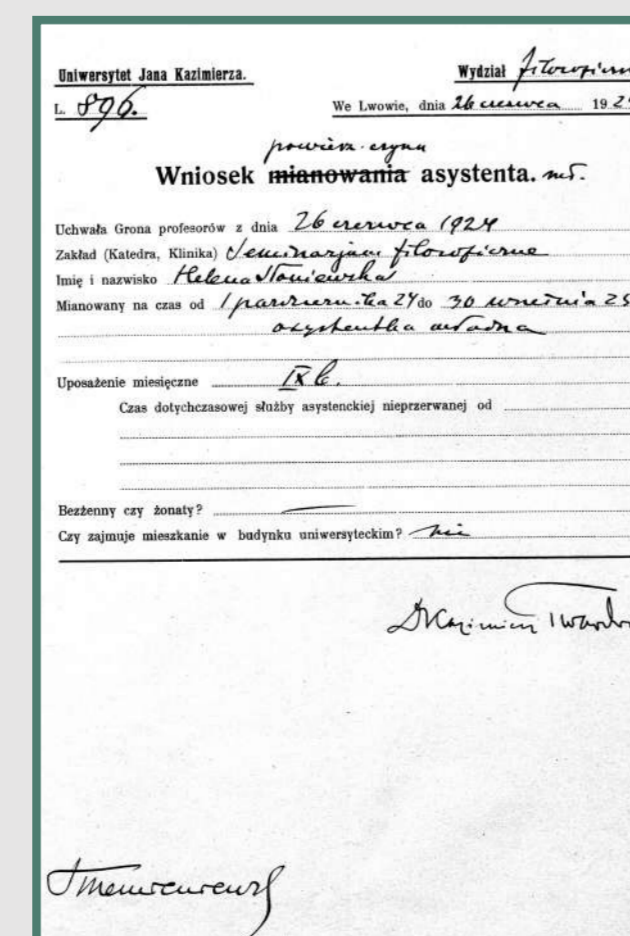 Uniwersytet Jana Kazimierza.
Wydział filozoficzn
L. 896.
We Lwowie, dnia 26 czerwca 192
Wniosek mianowania asystenta. mł.
Uchwała Grona profesorów z dnia 26 czerwca 1924
Zakład (Katedra, Klinika) Seminarjum filozoficzne
Imię i nazwisko Helena Słoniewska
Mianowany na czas od 1 października 24 do 30 września 25
asystentka młodsza
Uposażenie miesięczne IX b.
Czas dotychczasowej służby asystenckiej nieprzerwanej od
Bezżenny czy żonaty?
Czy zajmuje mieszkanie w budynku uniwersyteckim? nie
Dr Kazimierz Twardo